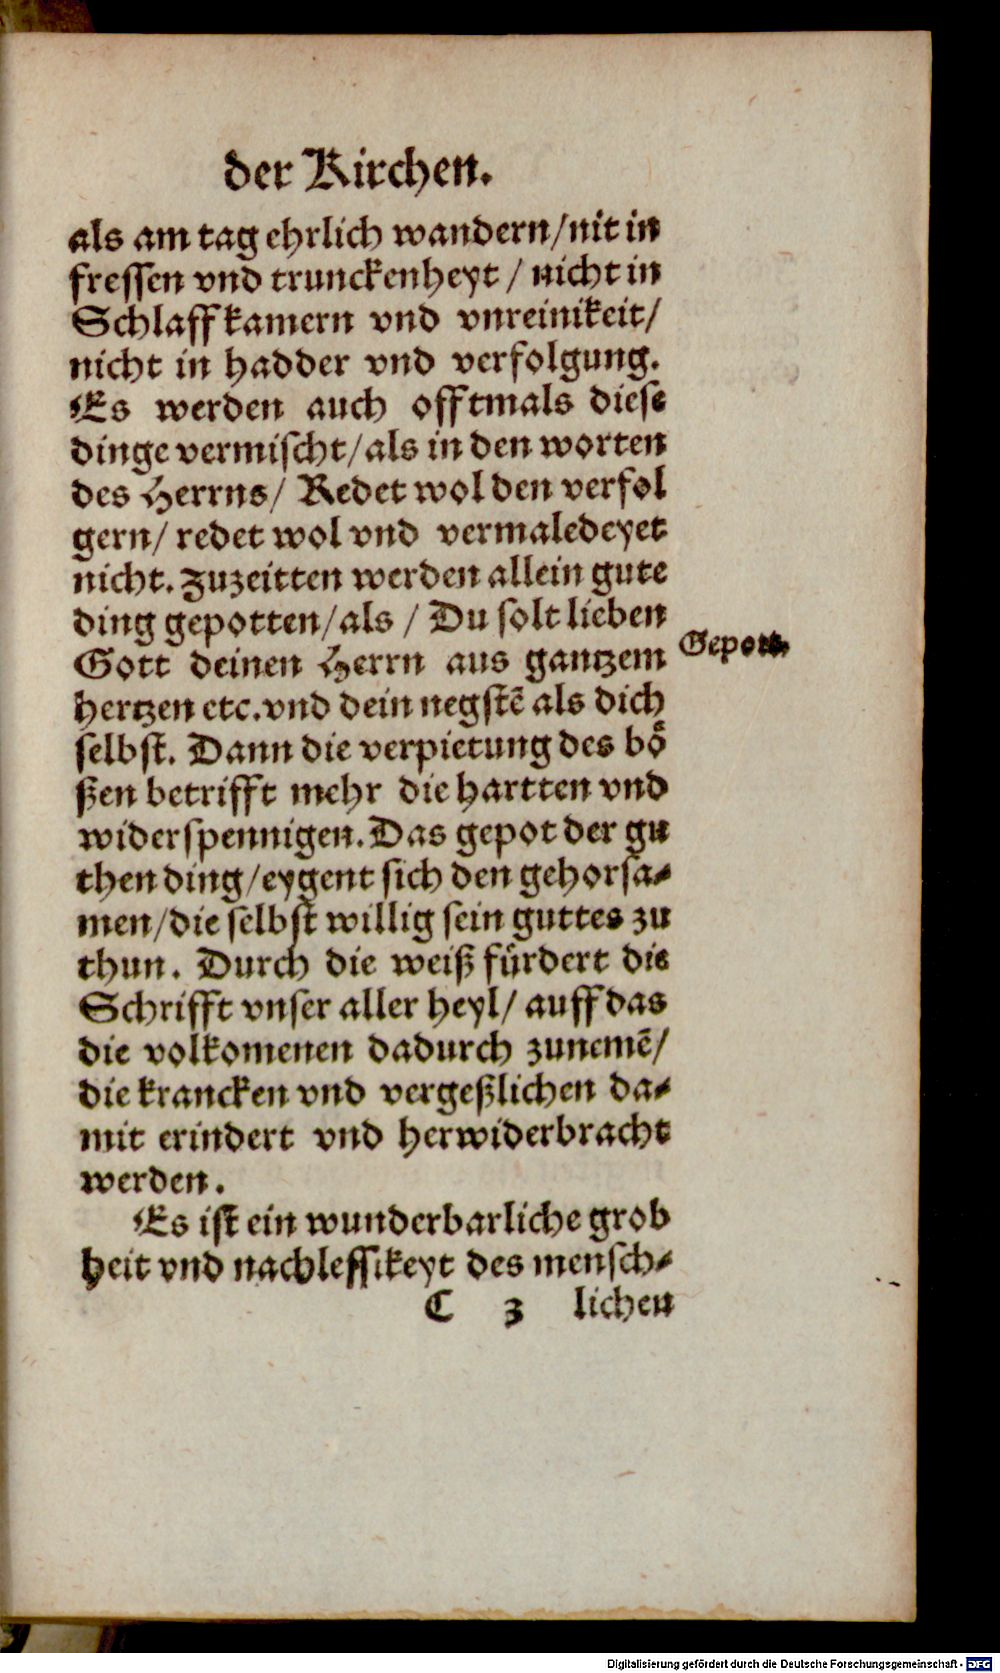 der Kirchen.
als am tag ehrlich wandern/nit in
fressen vnd trunckenheyt / nicht in
Schlaffkamern vnd vnreinikeit/
nicht in hadder vnd verfolgung.
Es werden auch offtmals diese
dinge vermischt/als in den worten
des Herrns/ Redet wol den verfol
gern/ redet wol vnd vermaledeyet
nicht. Zuzeitten werden allein gute
ding gepotten/als / Du solt lieben
Gott deinen Herrn aus gantzem
Gepott.
hertzen etc.vnd dein negstē als dich
selbst. Dann die verpietung des bö
ßen betrifft mehr die hartten vnd
widerspennigen.Das gepot der gu
then ding/eygent sich den gehorsa-
men/die selbst willig sein guttes zu
thun. Durch die weiß fürdert die
Schrifft vnser aller heyl/ auff das
die volkomenen dadurch zunemē/
die krancken vnd vergeßlichen da-
mit erindert vnd herwiderbracht
werden.
Es ist ein wunderbarliche grob
heit vnd nachlessikeyt des mensch-
C 3 lichen
Digitalisierung gefördert durch die Deutsche Forschungsgemeinschaft - DFG